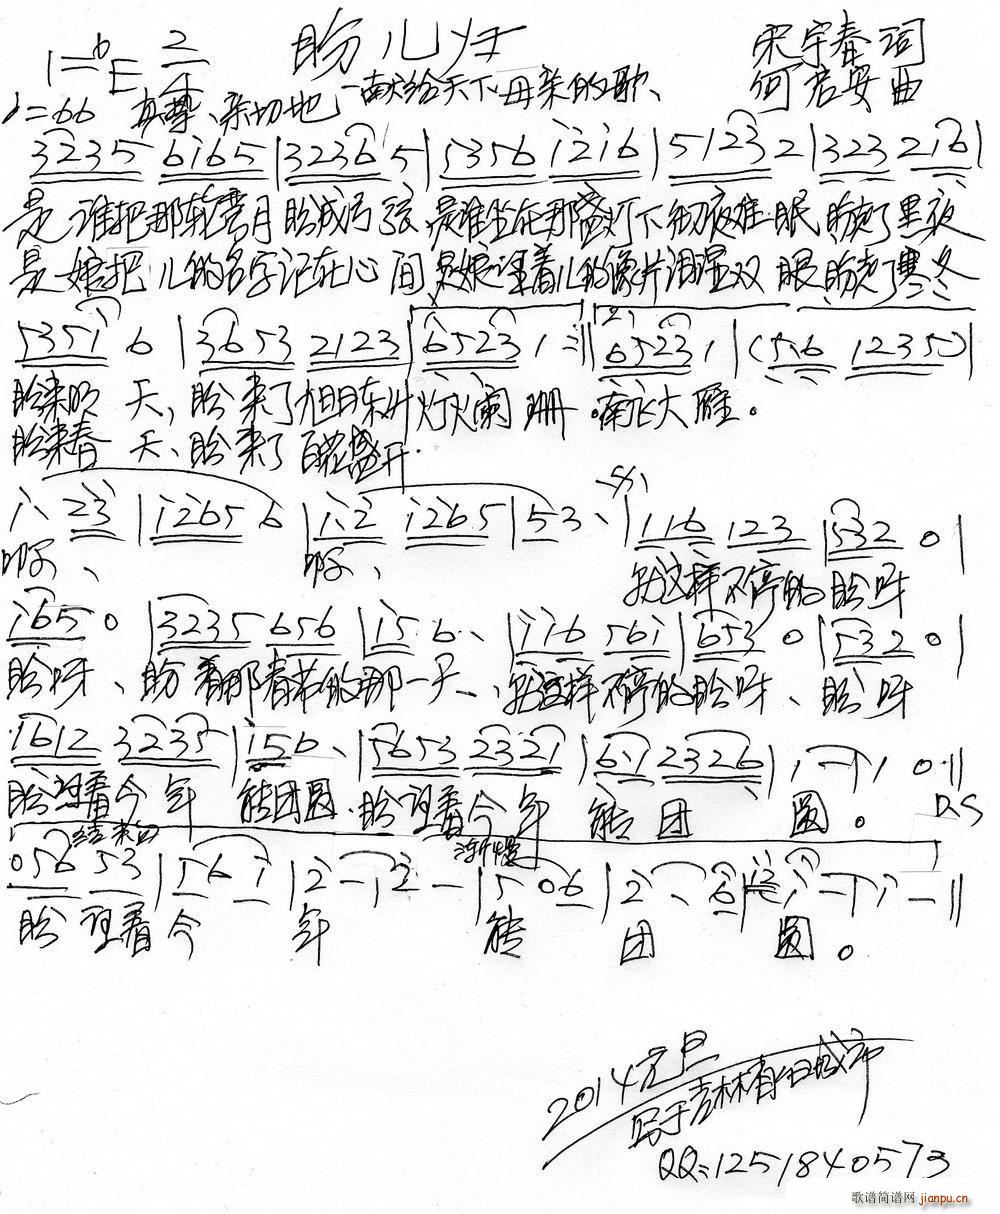 盼儿归
1=♭E 2/4
宋宇春 词
何君安 曲
♩=66 真挚、亲切地
—献给天下母亲的歌、
3235 6165 | 3236 5 | 5356 1216 | 5123 2 | 323 216 |
是谁把那轮弯月盼成弓弦,是谁坐在那盏灯下彻夜难眠,盼走了黑夜
是娘把儿的名字记在心间,是娘望着儿的像片泪湿双眼,盼走了寒冬
5351 6 | 3653 2123 | 6523 1 :|| 2、6523 1 | (5.6 1235) |
盼来明天,盼来了旭日东升灯火阑珊。南飞大雁。
盼来春天、盼来了百花盛开.
1、23 | 1265 6 | 1、2 1265 | 53、| 116 123 | 532 0 |
啊、啊、就这样不停的盼呀
165 0 | 3235 656 | 15 6、| 116 561 | 653 0 | 532 0 |
盼呀、盼着那春节的那一天、就这样不停的盼呀、盼呀
1612 3235 | 156、| 5653 2321 | 6.1 2326 | 1 — | 1 0 ||
盼望着今年能团圆.盼望着今年能团圆。
D.S
结束句
渐慢
056 53 | 56 1 | 2 — | 2 — | 5 06 | 2、6 | 1 — | 1 — ||
盼望着今年能团圆。
2014元旦
写于吉林省白城市
QQ:1251840573
歌谱简谱网 jianpu.cn